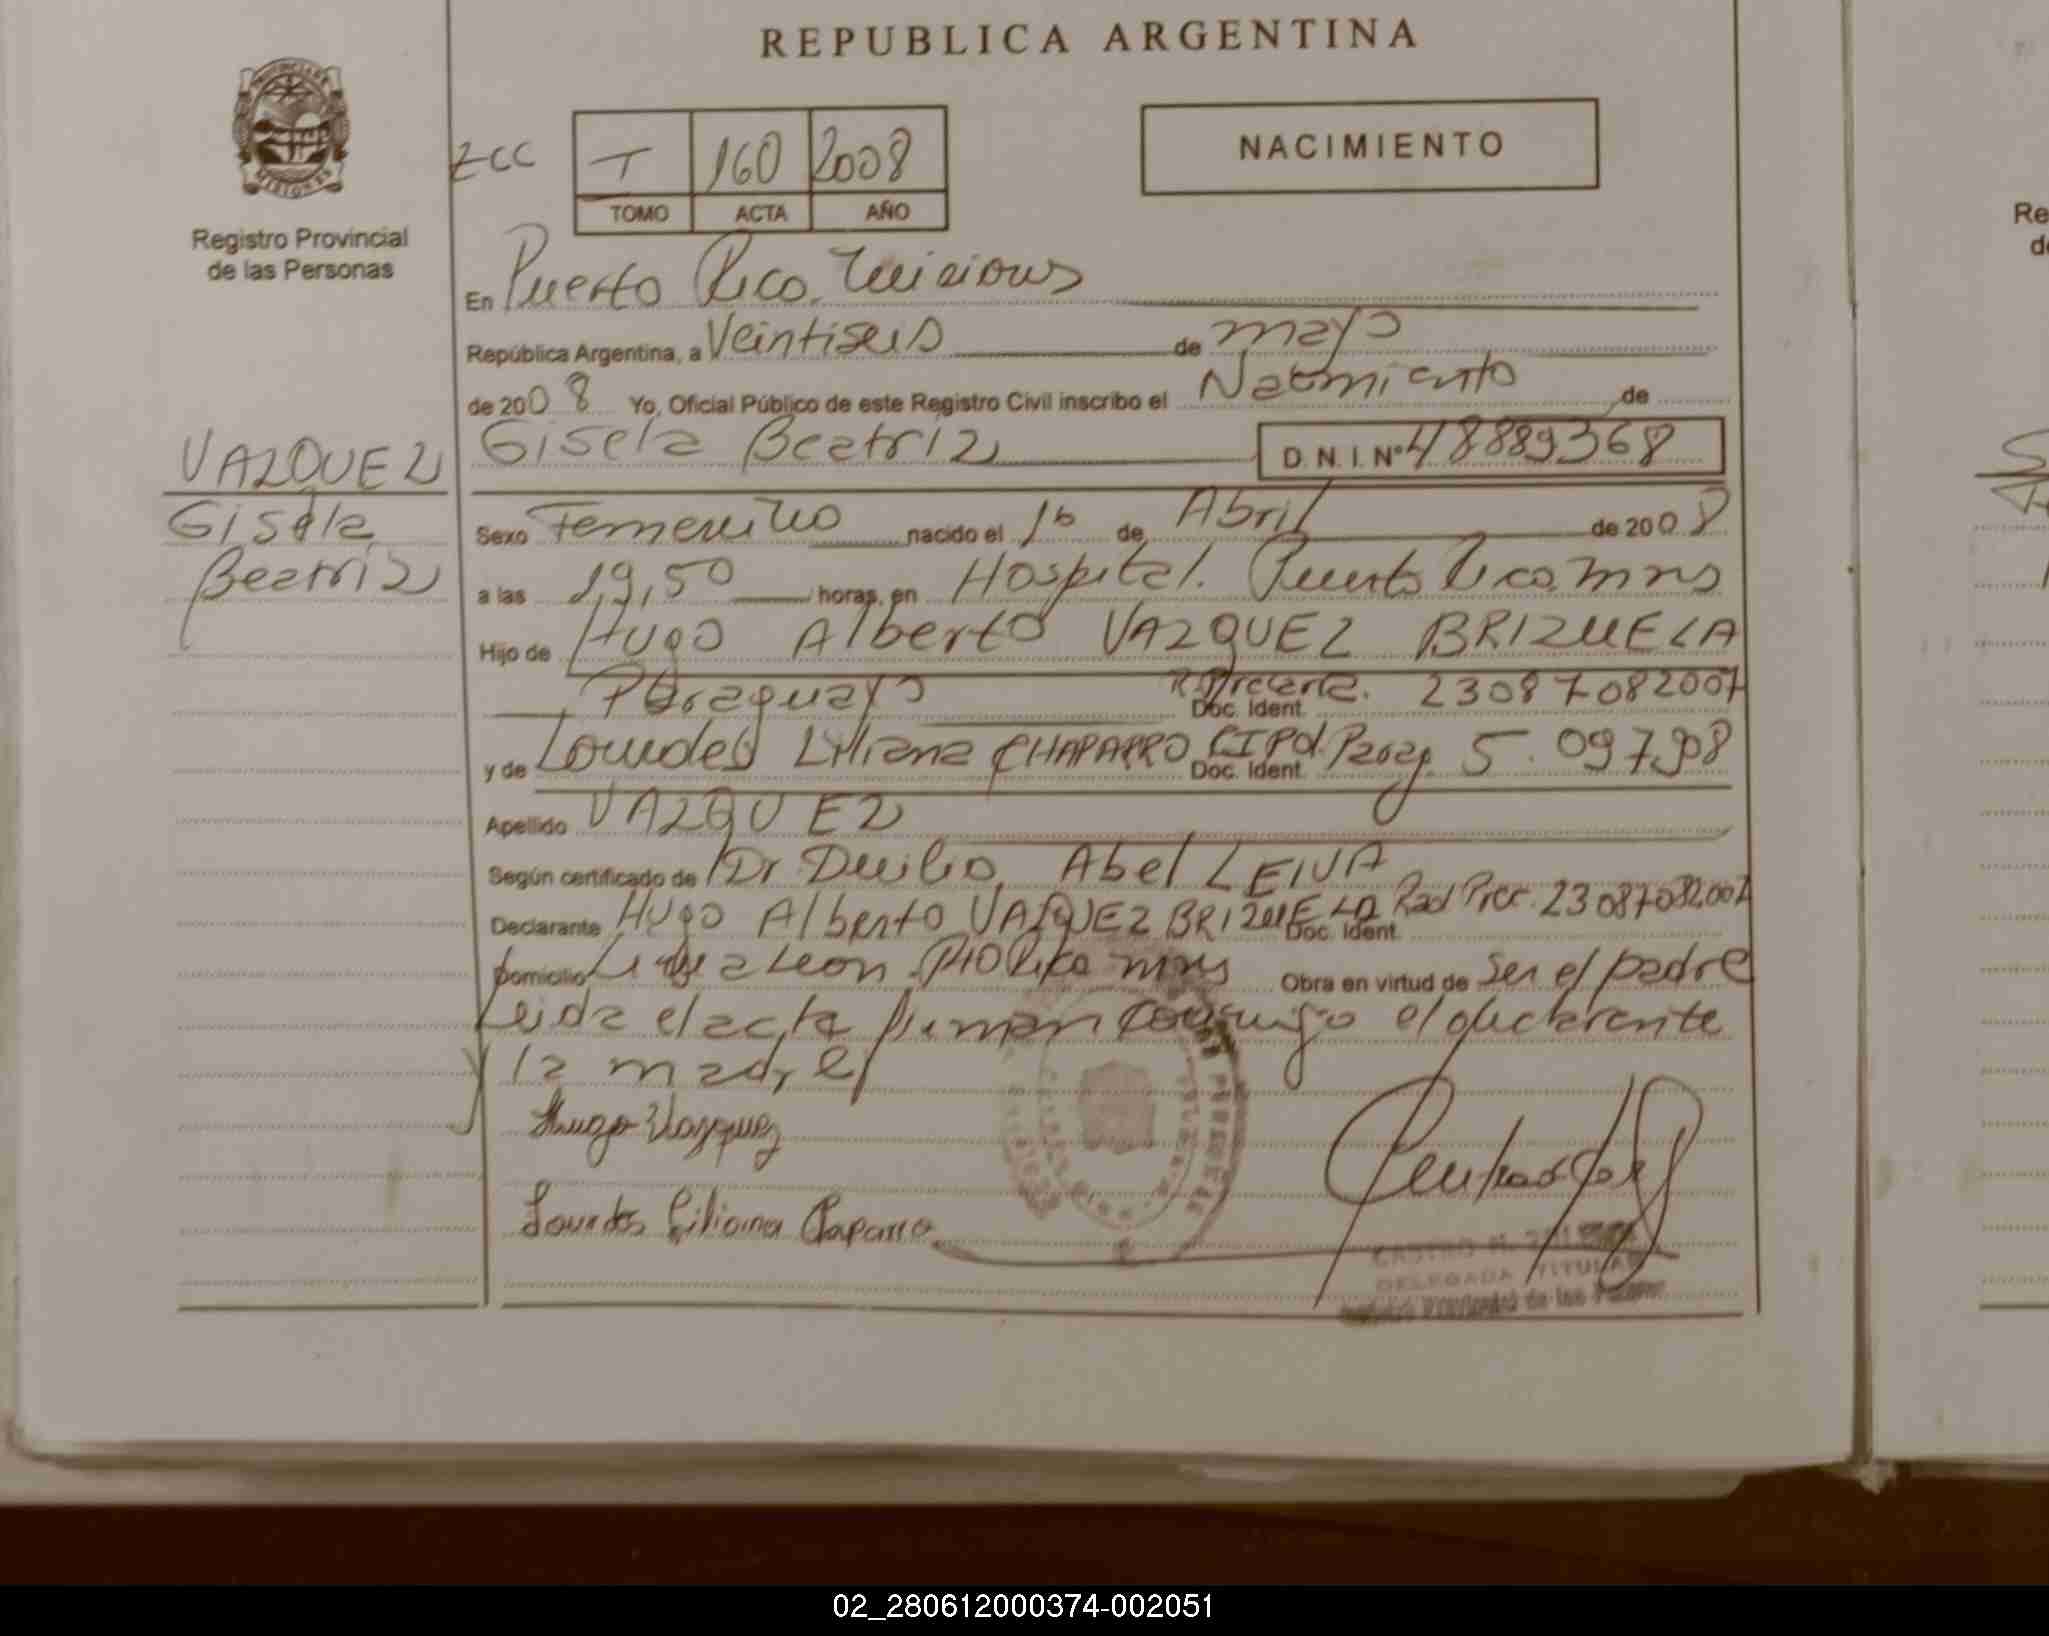 REPUBLICA ARGENTINA
PROVINCIA DE
MISIONES
Registro Provincial
de las Personas
T 160 2008
TOMO ACTA AÑO
NACIMIENTO
En Puerto Rico Misiones
República Argentina, a Veintiseis de mayo
de 2008 Yo, Oficial Público de este Registro Civil inscribo el Nacimiento de
VAZQUEZ
Gisela
Beatriz
Gisela Beatriz D.N.I. Nº 48889368
Sexo Femenino nacido el 16 de Abril de 2008
a las 19,50 horas, en Hospital. Puerto Rico mns
Hijo de Hugo Alberto VAZQUEZ BRIZUELA
Paraguayo R. Precaria. Doc. Ident. 23087082007
y de Lourdes Liliana CHAPARRO CIPol. Parag. Doc. Ident. 5.097.908
Apellido VAZQUEZ
Según certificado de Dr Duilio Abel LEIVA
Declarante Hugo Alberto VAZQUEZ BRIZUELA Rad Prec. Doc. Ident. 23087082007
Domicilio Leon Pto Rico mns Obra en virtud de Ser el padre
Leida el acta firman conmigo el declarante
y la madre
Hugo Vazquez
Lourdes Liliana Chaparro
CASTRO
DELEGADA TITULAR
Registro Provincial de las Personas
Re
de
02_280612000374-002051